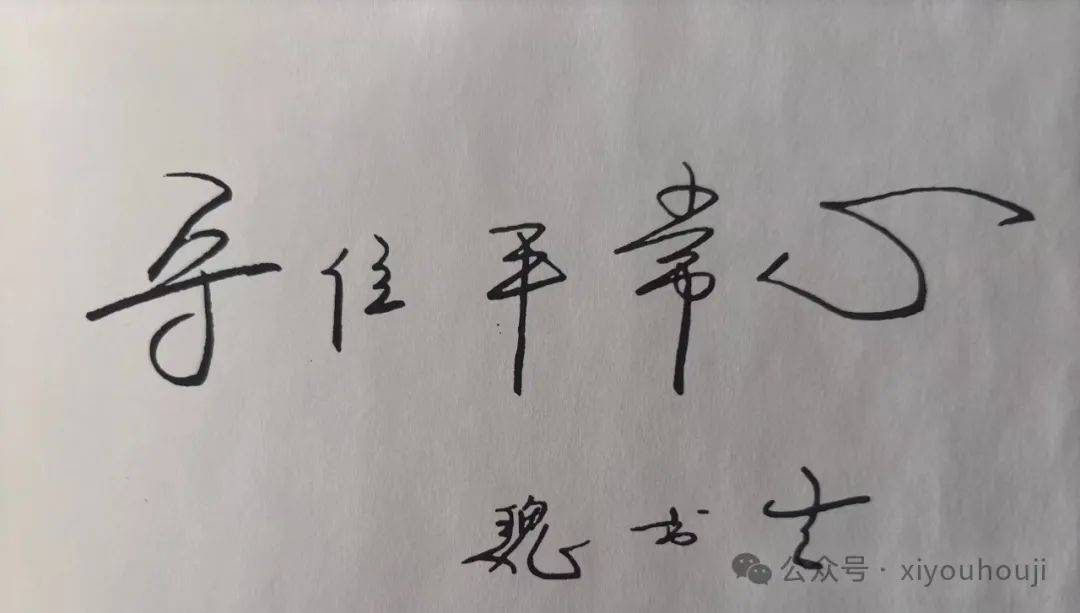 守住平常心
魏书生
公众号 · xiyouhouji